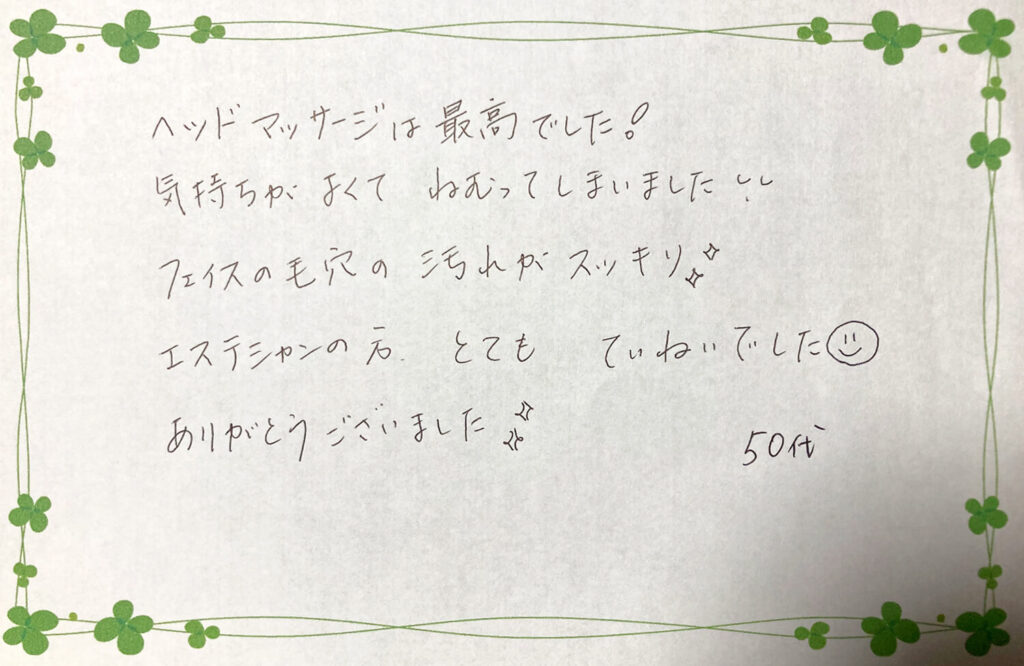 ヘッドマッサージは最高でした!
気持ちがよくて ねむってしまいました
フェイスの毛穴の汚れがスッキリ
エステシャンの方 とても ていねいでした
ありがとうございました
50代